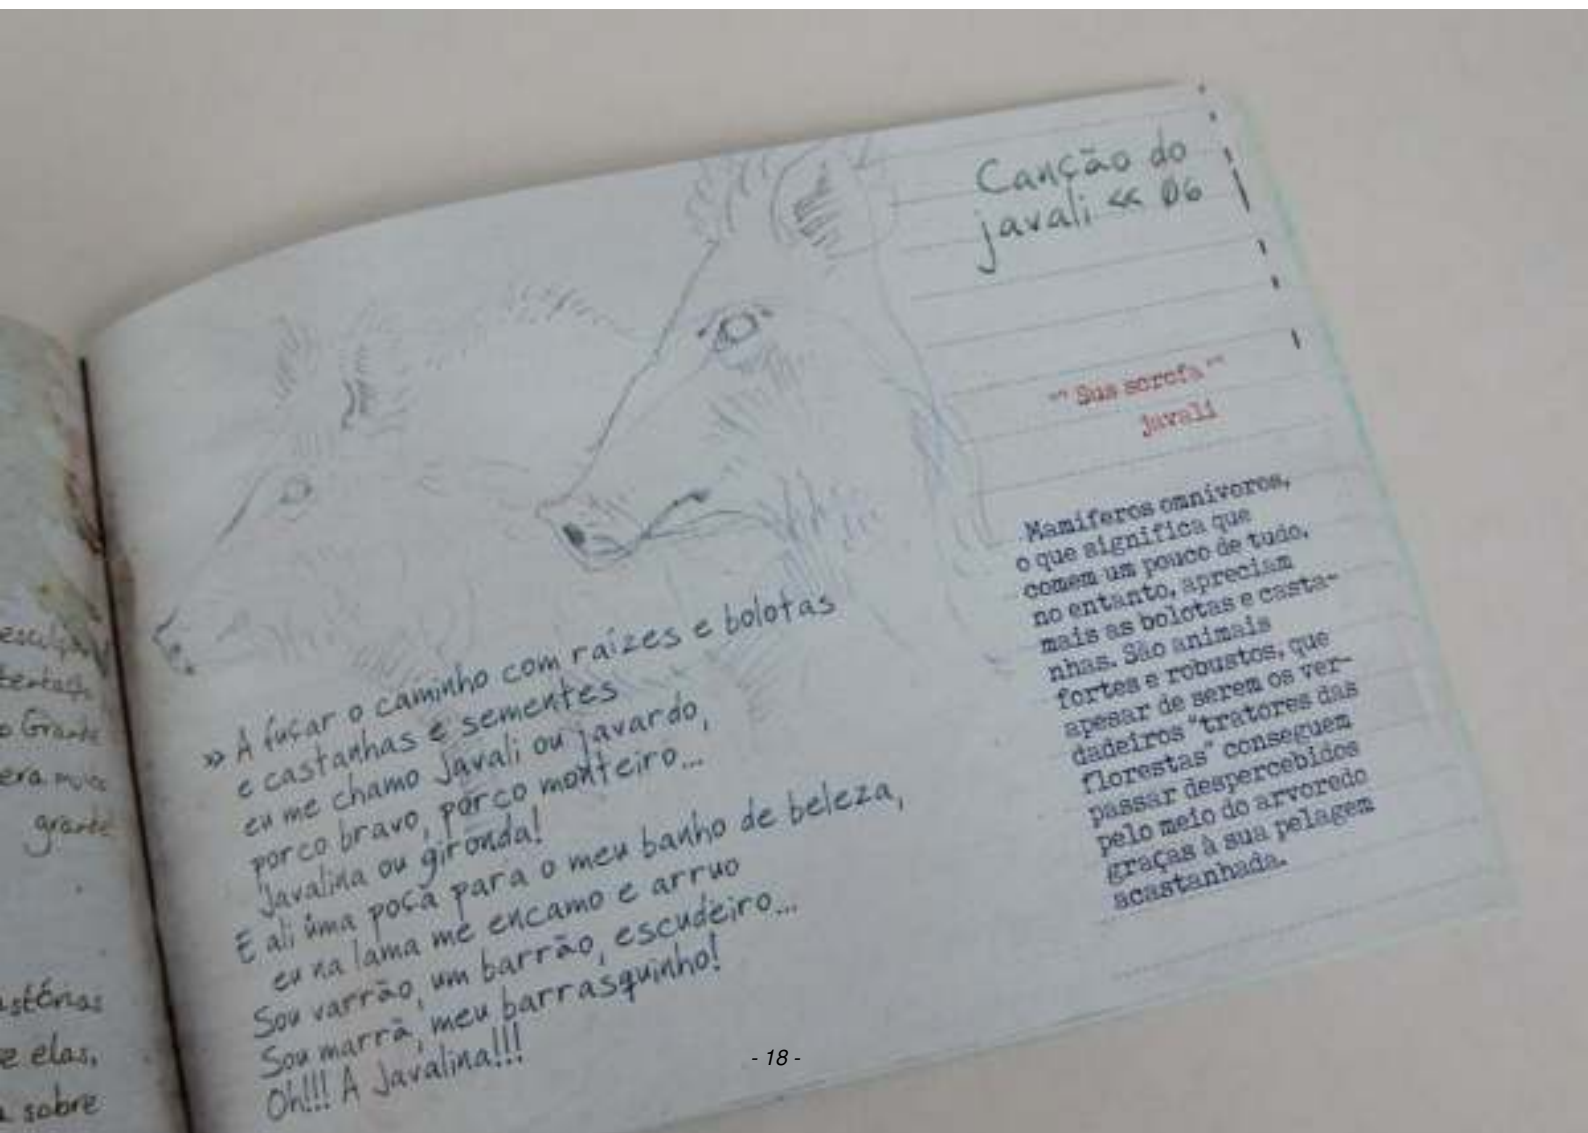 Canção do
javali << 06
"" Sus scrofa ""
javali
Mamíferos omnívoros,
o que significa que
comem um pouco de tudo,
no entanto, apreciam
mais as bolotas e casta-
nhas. São animais
fortes e robustos, que
apesar de serem os ver-
dadeiros "tratores das
florestas" conseguem
passar despercebidos
pelo meio do arvoredo
graças à sua pelagem
acastanhada.
>> A fuçar o caminho com raízes e bolotas
e castanhas e sementes
eu me chamo javali ou javardo,
porco bravo, porco monteiro...
Javalina ou gironda!
E ali uma poça para o meu banho de beleza,
eu na lama me encamo e arruo
Sou varrão, um barrão, escudeiro...
Sou marrã, meu barrasquinho!
Oh!!! A Javalina!!!
o Grande
era
grande
e elas,
sobre
- 18 -